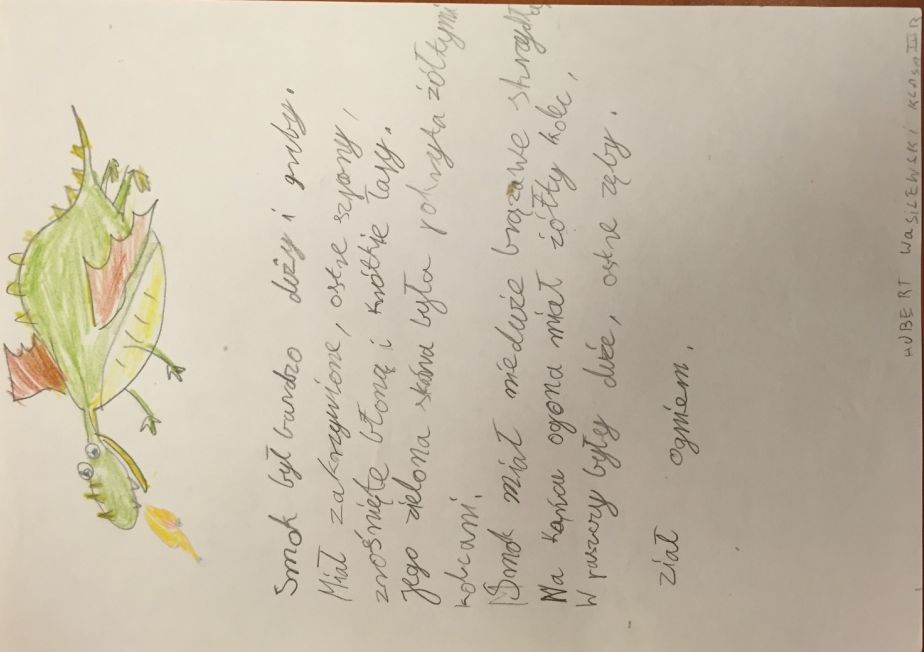 Smok był bardzo duży i gruby.
Miał zakrzywione, ostre szpony,
zrośnięte błoną i krótkie łapy.
Jego zielona skóra była pokryta żółtymi
kolcami.
Smok miał nieduże brązawe skrzydła
Na końcu ogona miał żółty kolec,
W paszczy były duże, ostre zęby.
ział ogniem.
HUBERT WASILEWSKI KLASA III B